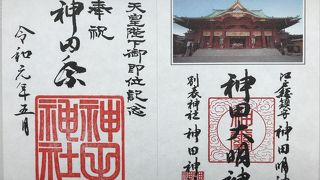 天皇陛下御即位記念
奉祝
神田祭
令和元年五月
神田
神社
江戸総鎮守
神田明神
神田大明神
別表神社
神田神